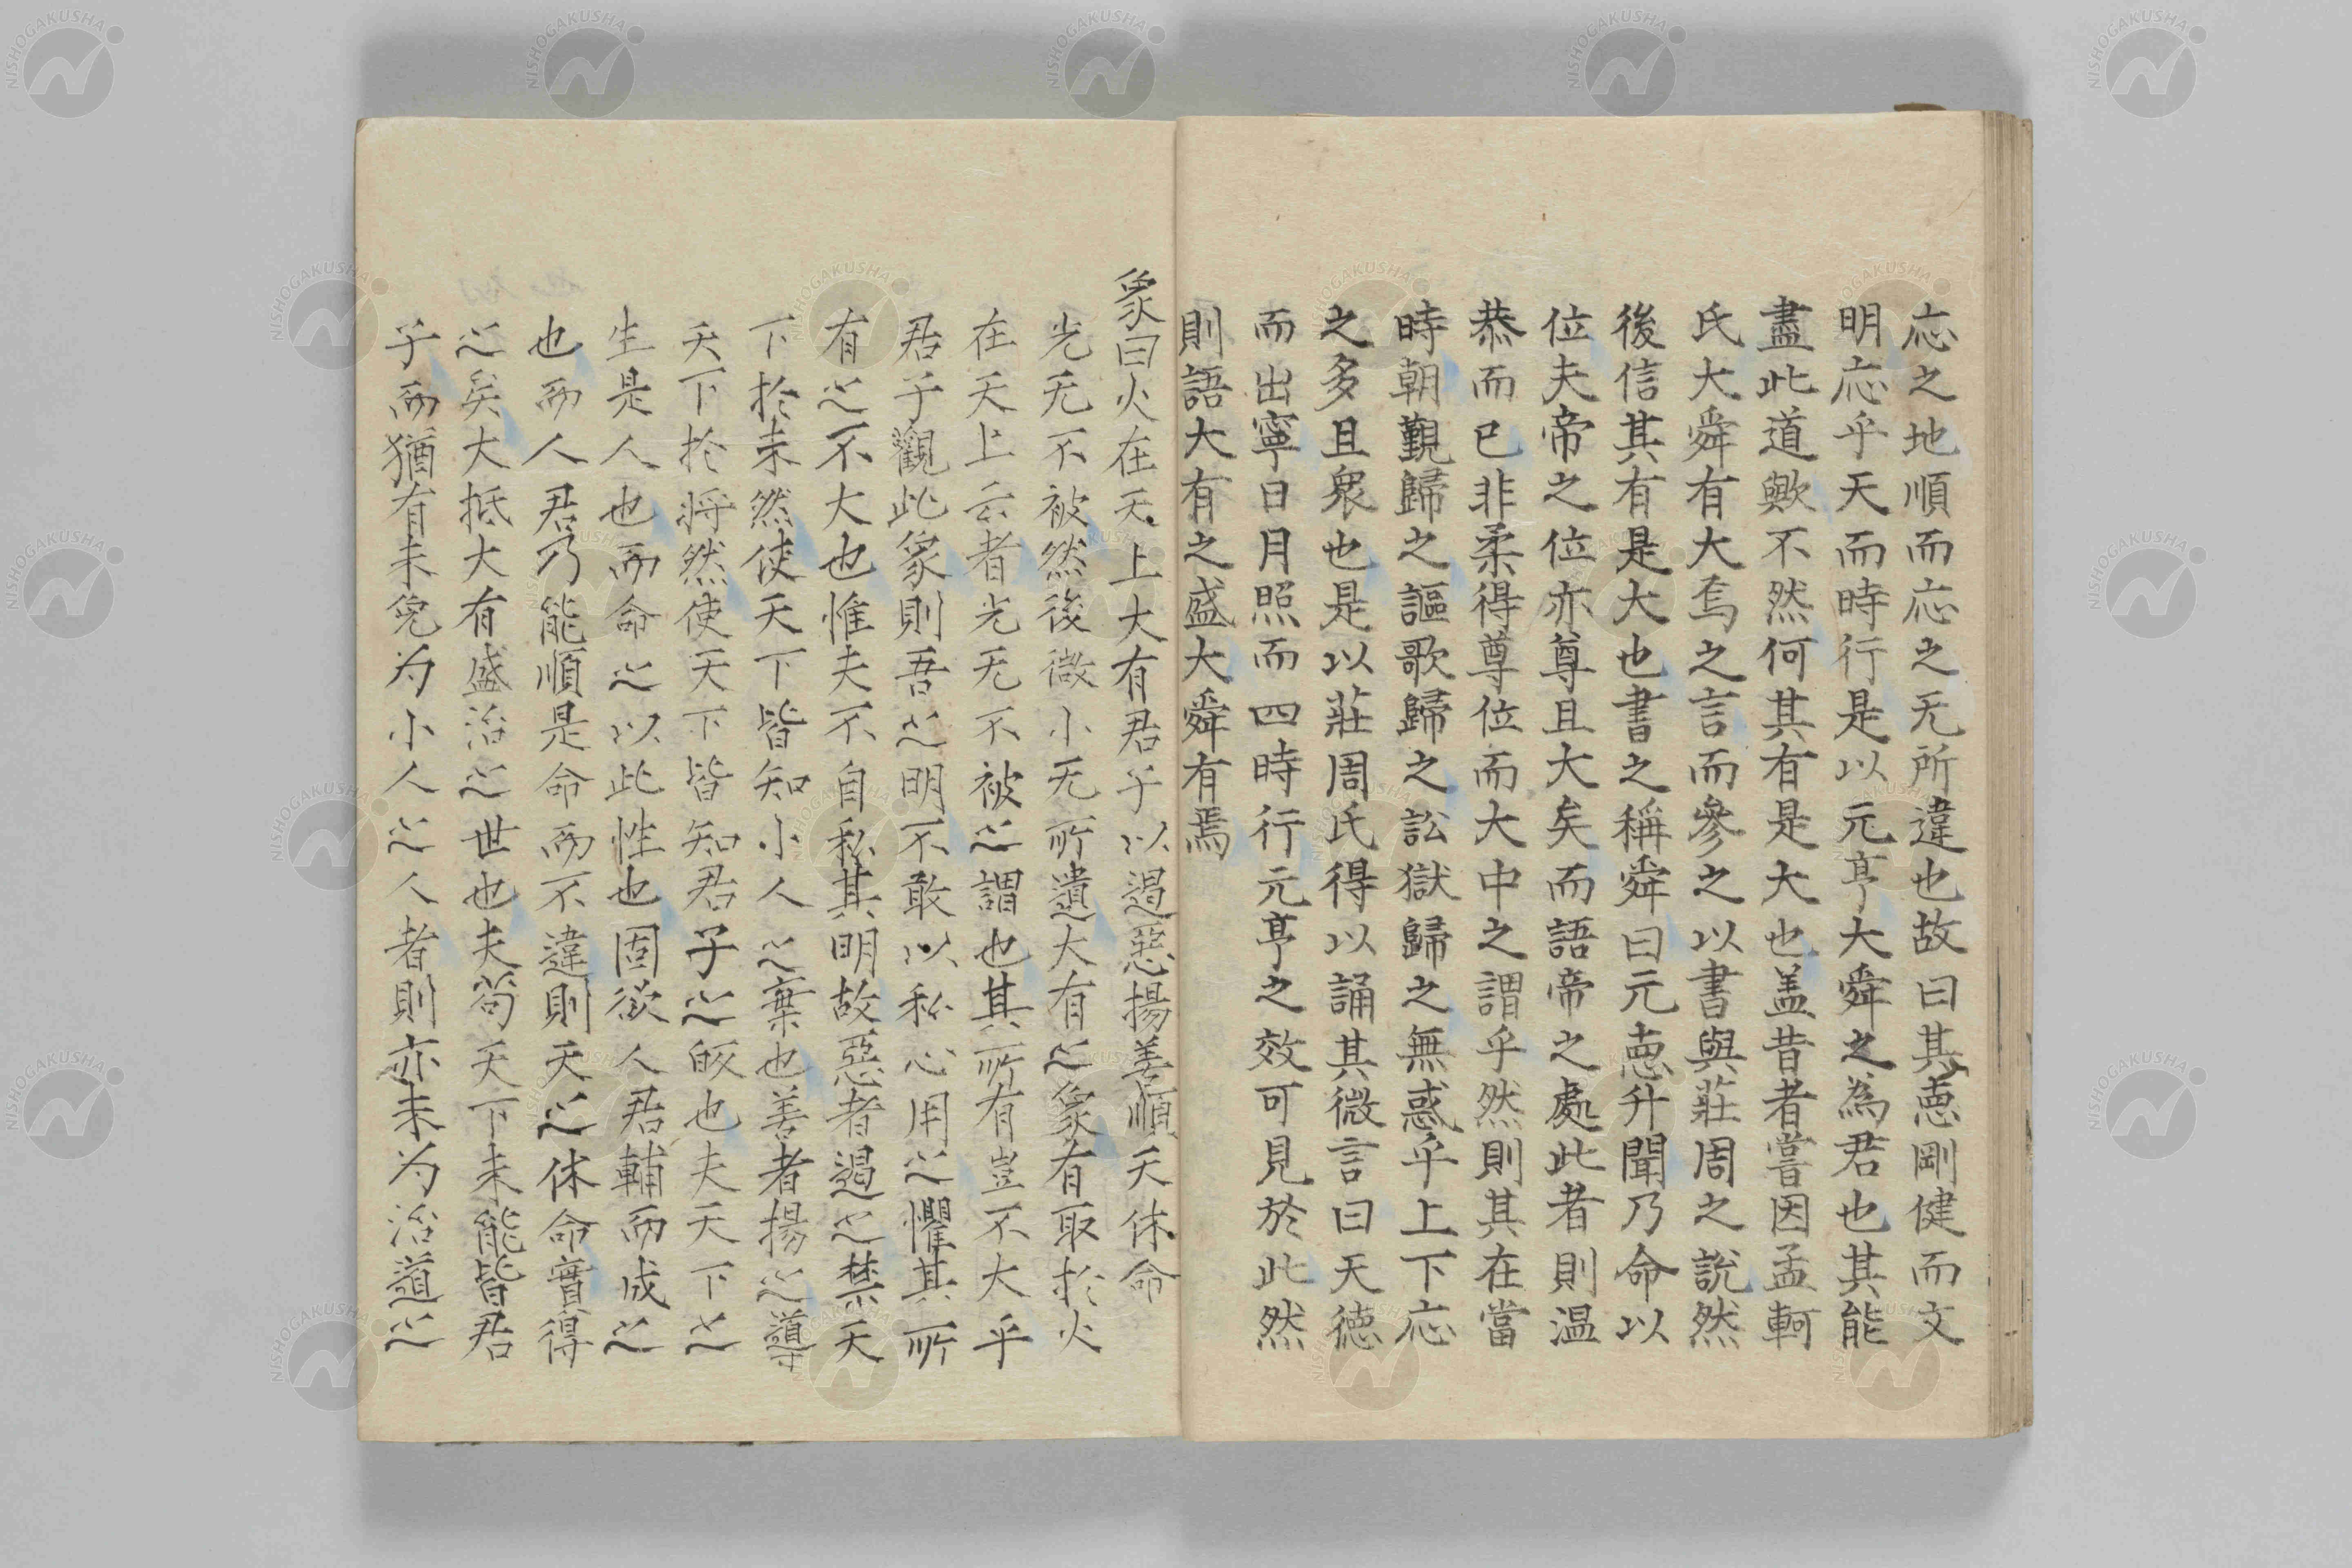 応之地順而応之无所違也故曰其悳剛健而文
明応乎天而時行是以元亨大舜之為君也其能
盡此道歟不然何其有是大也盖昔者嘗因孟軻
氏大舜有大焉之言而參之以書與莊周之說然
後信其有是大也書之稱舜曰元悳升聞乃命以
位夫帝之位亦尊且大矣而語帝之處此者則温
恭而已非柔得尊位而大中之謂乎然則其在當
時朝覲歸之謳歌歸之訟獄歸之無惑乎上下応
之多且衆也是以莊周氏得以誦其微言曰天徳
而出寧日月照而四時行元亨之效可見於此然
則語大有之盛大舜有焉
象曰火在天上大有君子以遏惡揚善順天休命
光无不被然後微小无所遺大有之象有取於火
在天上云者光无不被之謂也其所有豈不大乎
君子觀此象則吾之明不敢以私心用之懼其所
有之不大也惟夫不自私其明故惡者遏之禁天
下於未然使天下皆知小人之棄也善者揚之導
天下於将然使天下皆知君子之皈也夫天下之
生是人也而命之以此性也固欲人君輔而成之
也而人君乃能順是命而不違則天之休命實得
之矣大抵大有盛治之世也夫苟天下未能皆君
子而猶有未免为小人之人者則亦未为治道之
NISHOGAKUSHA